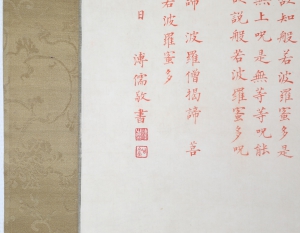 故知般若波羅蜜多是
無上呪是無等等呪能
故說般若波羅蜜多呪
諦 波羅僧揭諦 菩
若波羅蜜多
日 溥儒敬書